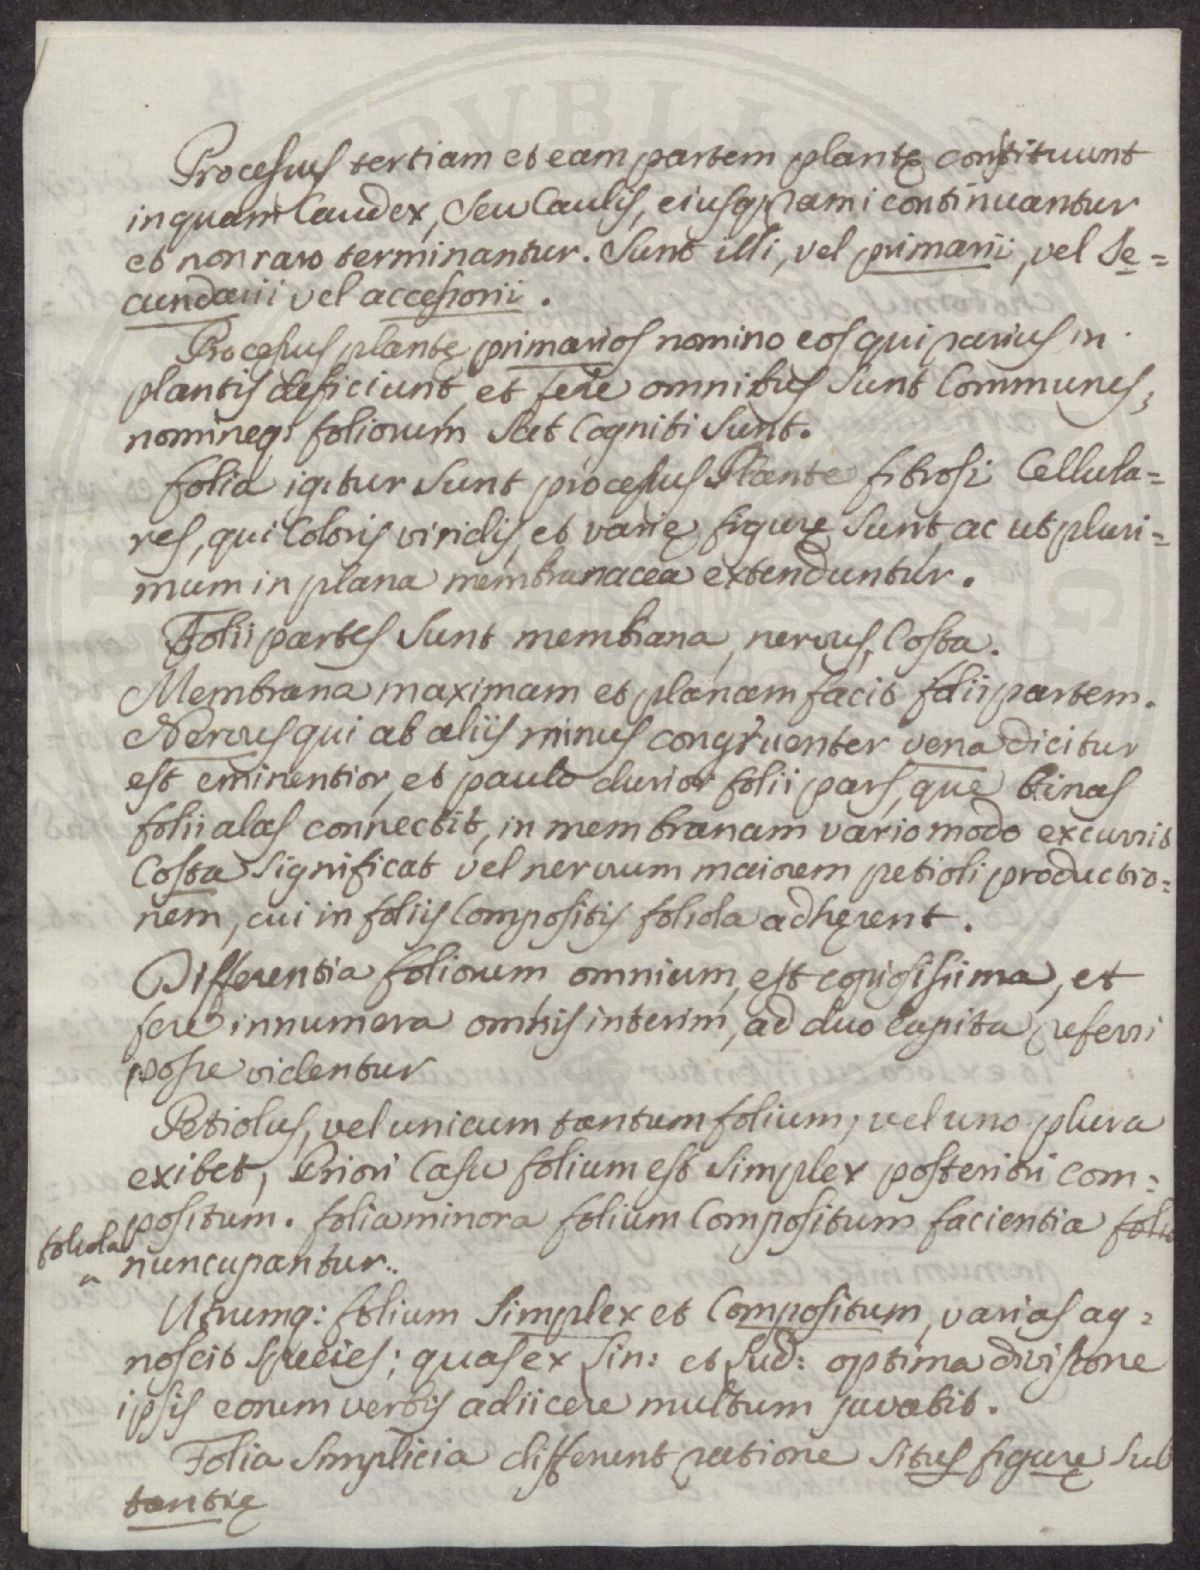 Processus tertiam et eam partem plantę constituunt
in quam Caudex, seu Caulis, eiusq; rami continuantur
et non raro terminantur. Sunt illi, vel primarii, vel Se=
cundarii vel accessorii.
Processus plantę primarios nomino eos qui parius in
plantis deficiunt et fere omnibus sunt Communes,
nomineq; foliorum sat Cogniti sunt.
Folia igitur sunt processus Plante fibrosi Cellula=
res, qui Coloris viridis, et varię figurę sunt, ac ut pluri=
mum in plana membranacea extenduntur.
Folii partes sunt membrana, nervus, Costa.
Membrana maximam et planam facit folii partem.
Nervus qui ab aliis minus congruenter vena dicitur
est eminentior, et paulo durior folii pars, que binas
folii alas connectit, in membranam vario modo excurrit
Costa significat vel nervum maiorem petioli productio=
nem, cui in foliis Compositis foliola adhęrent.
Differentia foliorum omnium, est copiosissima, et
fere innumera omnis interim, ad duo capita referri
posse videntur
Petiolus, vel unicum tantum folium, vel uno plura
exibet, Priori Casu folium est simplex posteriori com=
positum. folia minora folium Compositum facientia folia
foliola nuncupantur.
Utrumq: folium simplex et Compositum, varias ag=
noscit species; quas ex Lin: et Lud: optima divisione
ipsis eorum verbis adiicere multum juvabit.
Folia simplicia different ratione situs figurę sub
tantię